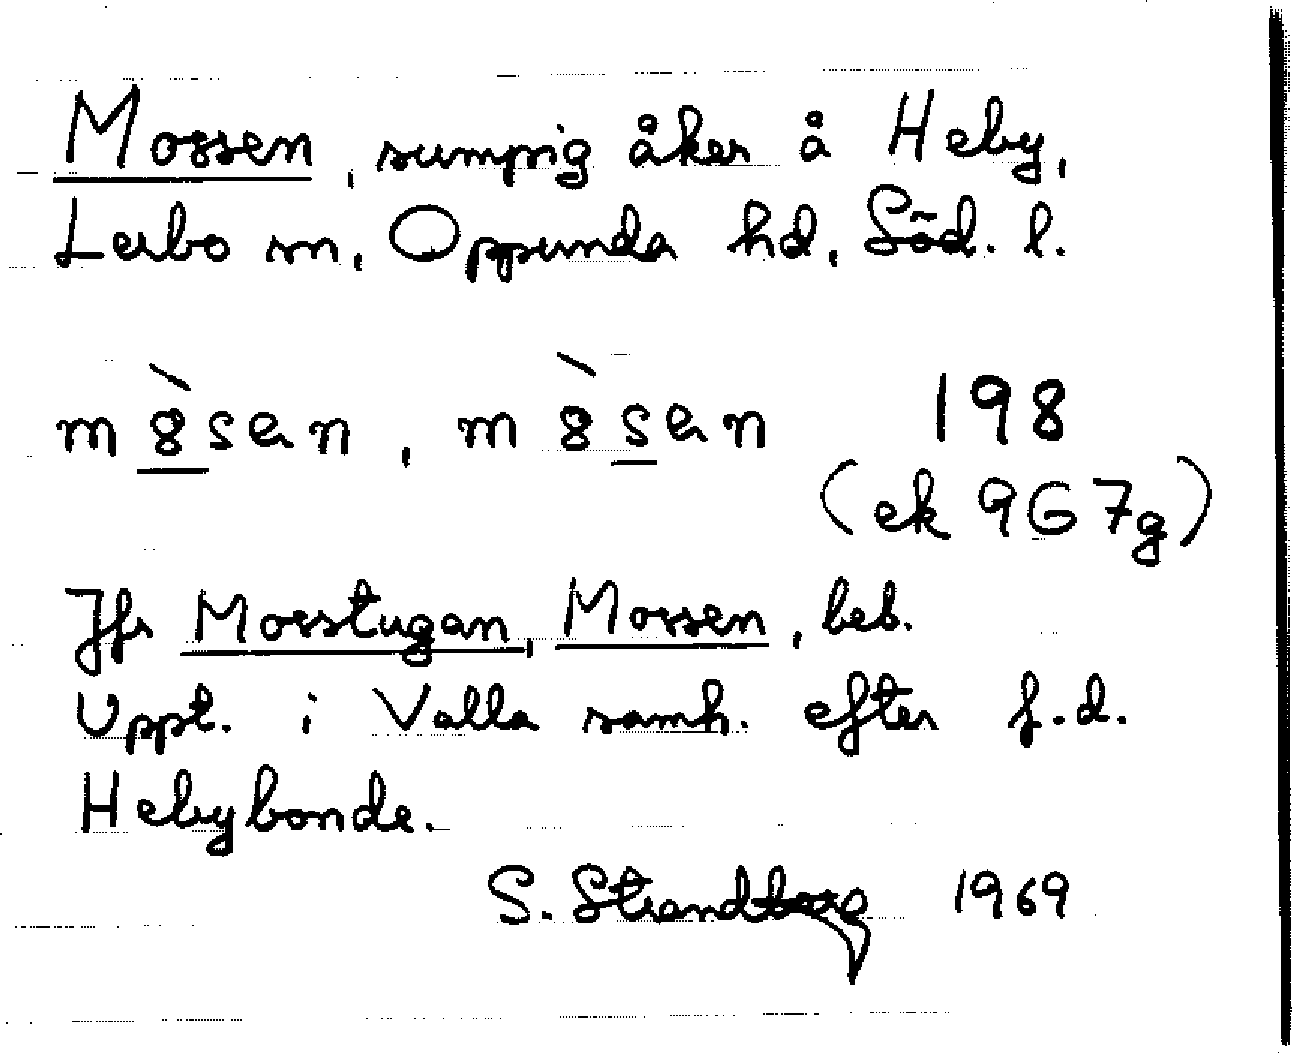 Mossen, sumpig åker å Heby,
Lerbo sn, Oppunda hd, Söd. l.
m8̀sen, m8̀sen 198
(ek 9G7g)
Jfr Mosstugan, Mossen, beb.
Uppt. i Valla samh. efter f.d.
Hebybonde.
S. Strandberg 1969